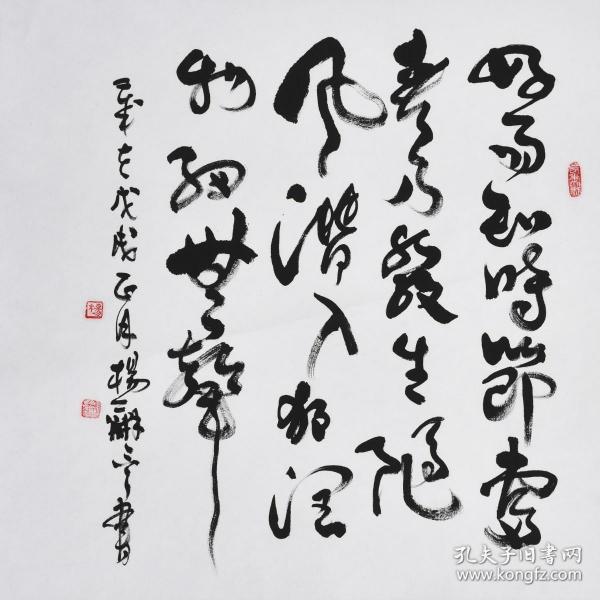 好雨知時節當
春乃發生隨
风潛入夜润
物細無聲
歲在戊戌正月楊書
孔夫子旧书网
www.kongfz.com